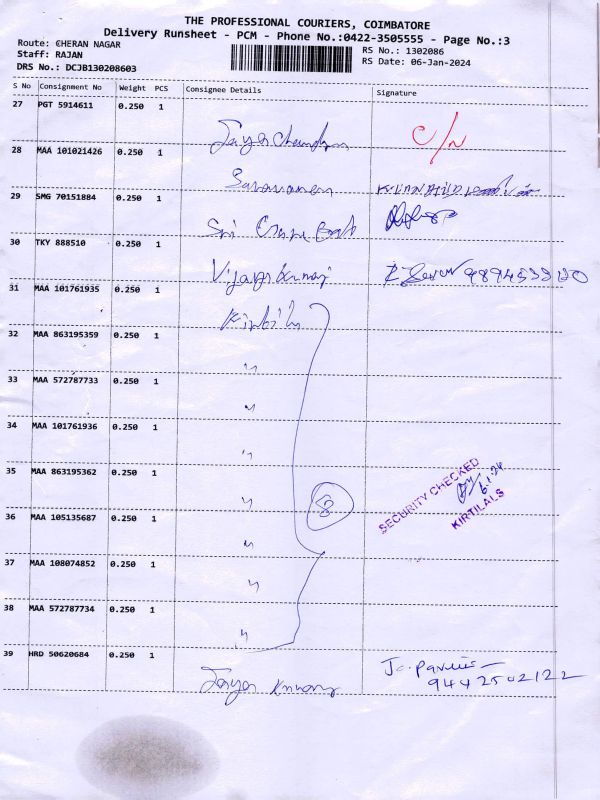 THE PROFESSIONAL COURIERS, COIMBATORE
Delivery Runsheet - PCM - Phone No.:0422-3505555 - Page No.:3
Route: CHERAN NAGAR
RS No.: 1302086
Staff: RAJAN
RS Date: 06-Jan-2024
DRS No.: DCJB130208603
S No Consignment No Weight PCS Consignee Details Signature
27 PGT 5914611 0.250 1 C/N
28 MAA 101021426 0.250 1 Saravanan
29 SMG 70151884 0.250 1 Sri
30 TKY 888510 0.250 1 Vijayakumar
31 MAA 101761935 0.250 1
32 MAA 863195359 0.250 1 "
33 MAA 572787733 0.250 1 "
34 MAA 101761936 0.250 1 "
35 MAA 863195362 0.250 1 " 8
SECURITY CHECKED
6.1.24
KIRTILALS
36 MAA 105135687 0.250 1 "
37 MAA 108074852 0.250 1 "
38 MAA 572787734 0.250 1 "
39 HRD 50620684 0.250 1 Jaya
9442502122